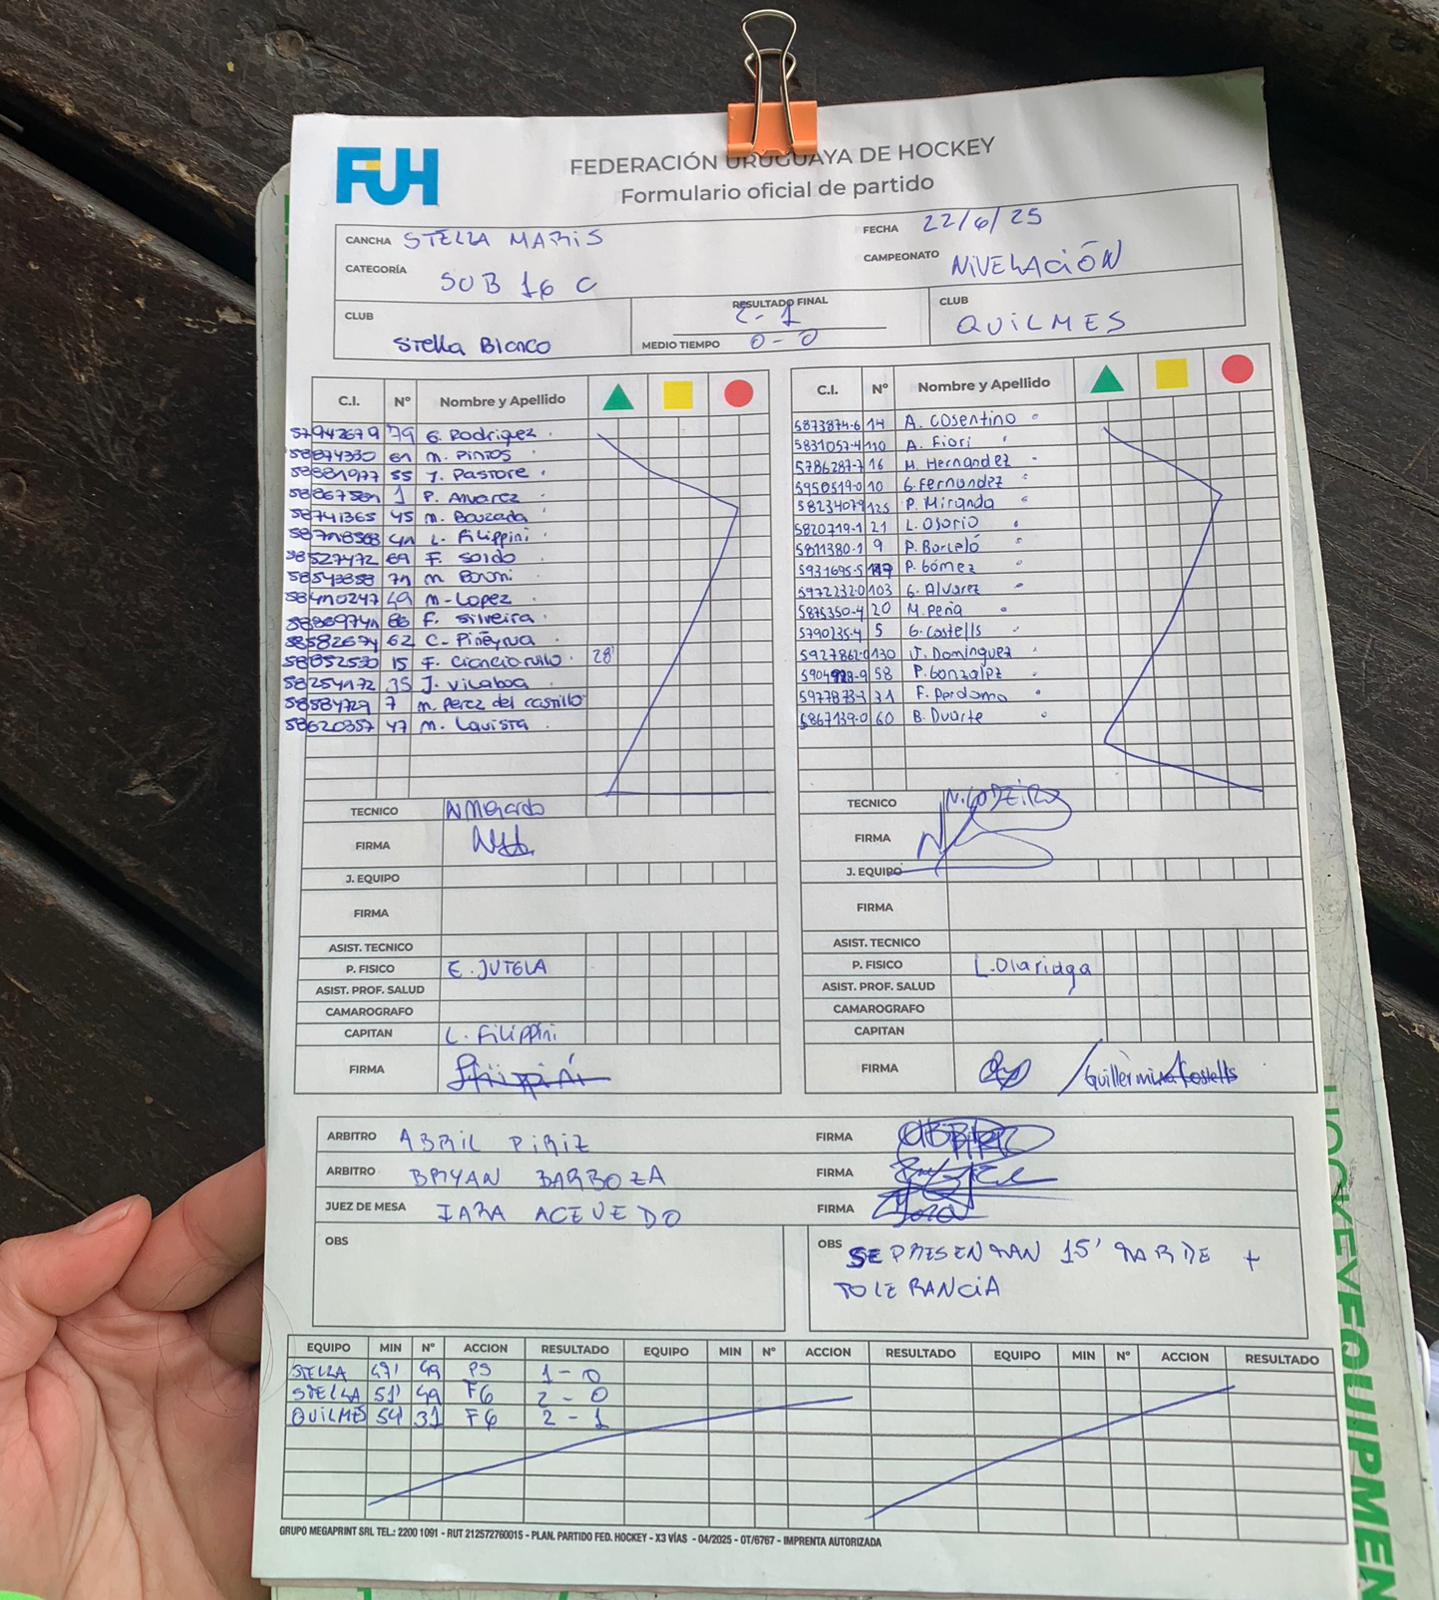 FUH
FEDERACIÓN URUGUAYA DE HOCKEY
Formulario oficial de partido
CANCHA STELLA MARIS
FECHA 22/6/25
CATEGORÍA SUB 16 C
CAMPEONATO NIVELACIÓN
CLUB Stella Blanco
RESULTADO FINAL 2-1
MEDIO TIEMPO 0-0
CLUB QUILMES
C.I. Nº Nombre y Apellido
79 G. Rodriguez
61 M. Pintos
55 J. Pastore
1 P. Alvarez
58741365 45 M. Bouzada
L. Filippini
58527472 69 F. Soldo
71 M.
58410247 49 M. Lopez
66 F. Silveira
62 C. Piñeyrua
58852530 15 F. Ciancio rullo 28'
58254172 35 J. Vilaboa
58584729 7 M. Perez del castillo
58620357 47 M. Lavista
TECNICO N Mercado
FIRMA
J. EQUIPO
FIRMA
ASIST. TECNICO
P. FISICO E. JUTGLA
ASIST. PROF. SALUD
CAMAROGRAFO
CAPITAN L. Filippini
FIRMA
C.I. Nº Nombre y Apellido
5873874-6 14 A. Cosentino
5831057-4 110 A. Fiori
5786287-7 16 M. Hernandez
5950519-0 10 G. Fernandez
5823407-9 125 P. Miranda
5820719-1 21 L. Osorio
5811380-1 9 P. Barceló
5931695-5 P. Gómez
5972232-0 103 G. Alvarez
5875350-4 20 M. Peña
5790235-4 5 G. Costells
5927862-0 130 J. Dominguez
58 P. Gonzalez
5977873-3 31 F. Perdomo
5867139-0 60 B. Duarte
TECNICO
FIRMA
J. EQUIPO
FIRMA
ASIST. TECNICO
P. FISICO L. Olariaga
ASIST. PROF. SALUD
CAMAROGRAFO
CAPITAN
FIRMA / Guillermina Costells
ARBITRO ABRIL PIRIZ FIRMA
ARBITRO BRYAN BARBOZA FIRMA
JUEZ DE MESA IARA ACEVEDO FIRMA
OBS
OBS SE PRESENTAN 15' TARDE +
TOLERANCIA
EQUIPO MIN Nº ACCION RESULTADO EQUIPO MIN Nº ACCION RESULTADO EQUIPO MIN Nº ACCION RESULTADO
STELLA 47' 49 PS 1-0
STELLA 51' 49 FG 2-0
QUILMES 54' 31 FG 2-1
GRUPO MEGAPRINT SRL TEL.: 2200 1091 - RUT 212572760015 - PLAN. PARTIDO FED. HOCKEY - X3 VÍAS - 04/2025 - OT/6767 - IMPRENTA AUTORIZADA